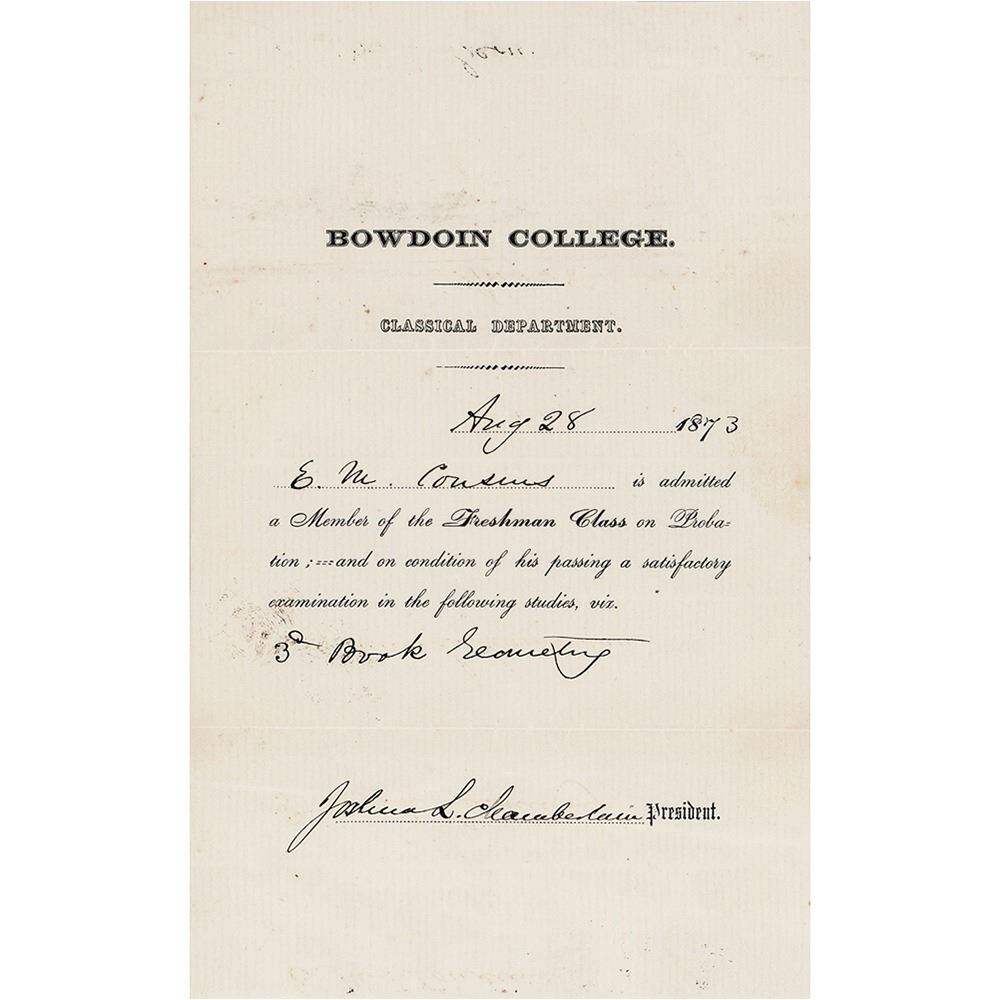 BOWDOIN COLLEGE.
CLASSICAL DEPARTMENT.
Aug 28 1873
E. M. Cousins is admitted
a Member of the Freshman Class on Proba=
tion ;===and on condition of his passing a satisfactory
examination in the following studies, viz.
3d Book Geometry
Joshua L. Chamberlain President.